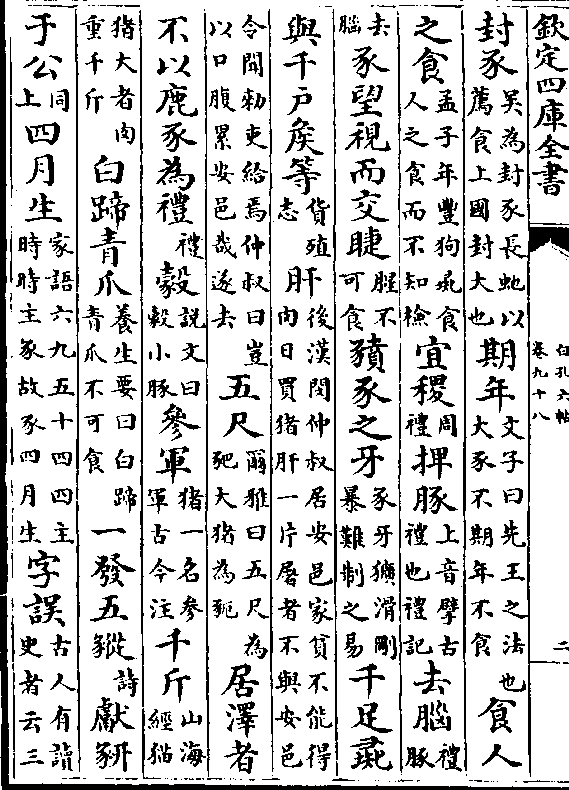 欽定四庫全書 白孔六帖 卷九十八 二
封豕吳為封豕長虵以薦食上國封大也期年文子曰先王之法也大豕不期年不食食人
之食孟子年豐狗彘食人之食而不知檢宜稷周禮捭豚上音擘古禮也禮記去腦禮豚
去腦豕望視而交睫腥不可食豶豕之牙豕牙獷滑剛暴難制之易千足彘
與千戶矦等貨殖志肝後漢閔仲叔居安邑家貧不能得肉日買猪肝一片屠者不與安邑
令聞勑吏給焉仲叔曰豈以口腹累安邑哉遂去五尺爾雅曰五尺為豟大猪為豟居澤者
不以鹿豕為禮禮豰說文曰豰小豚參軍猪一名參軍古今注千斤山海經猫
猪大者肉重千斤白蹄青爪養生要曰白蹄青爪不可食一發五豵詩獻豜
于公同上四月生家語六九五十四四主時時主豕故豕四月生字誤古人有讀史者云三